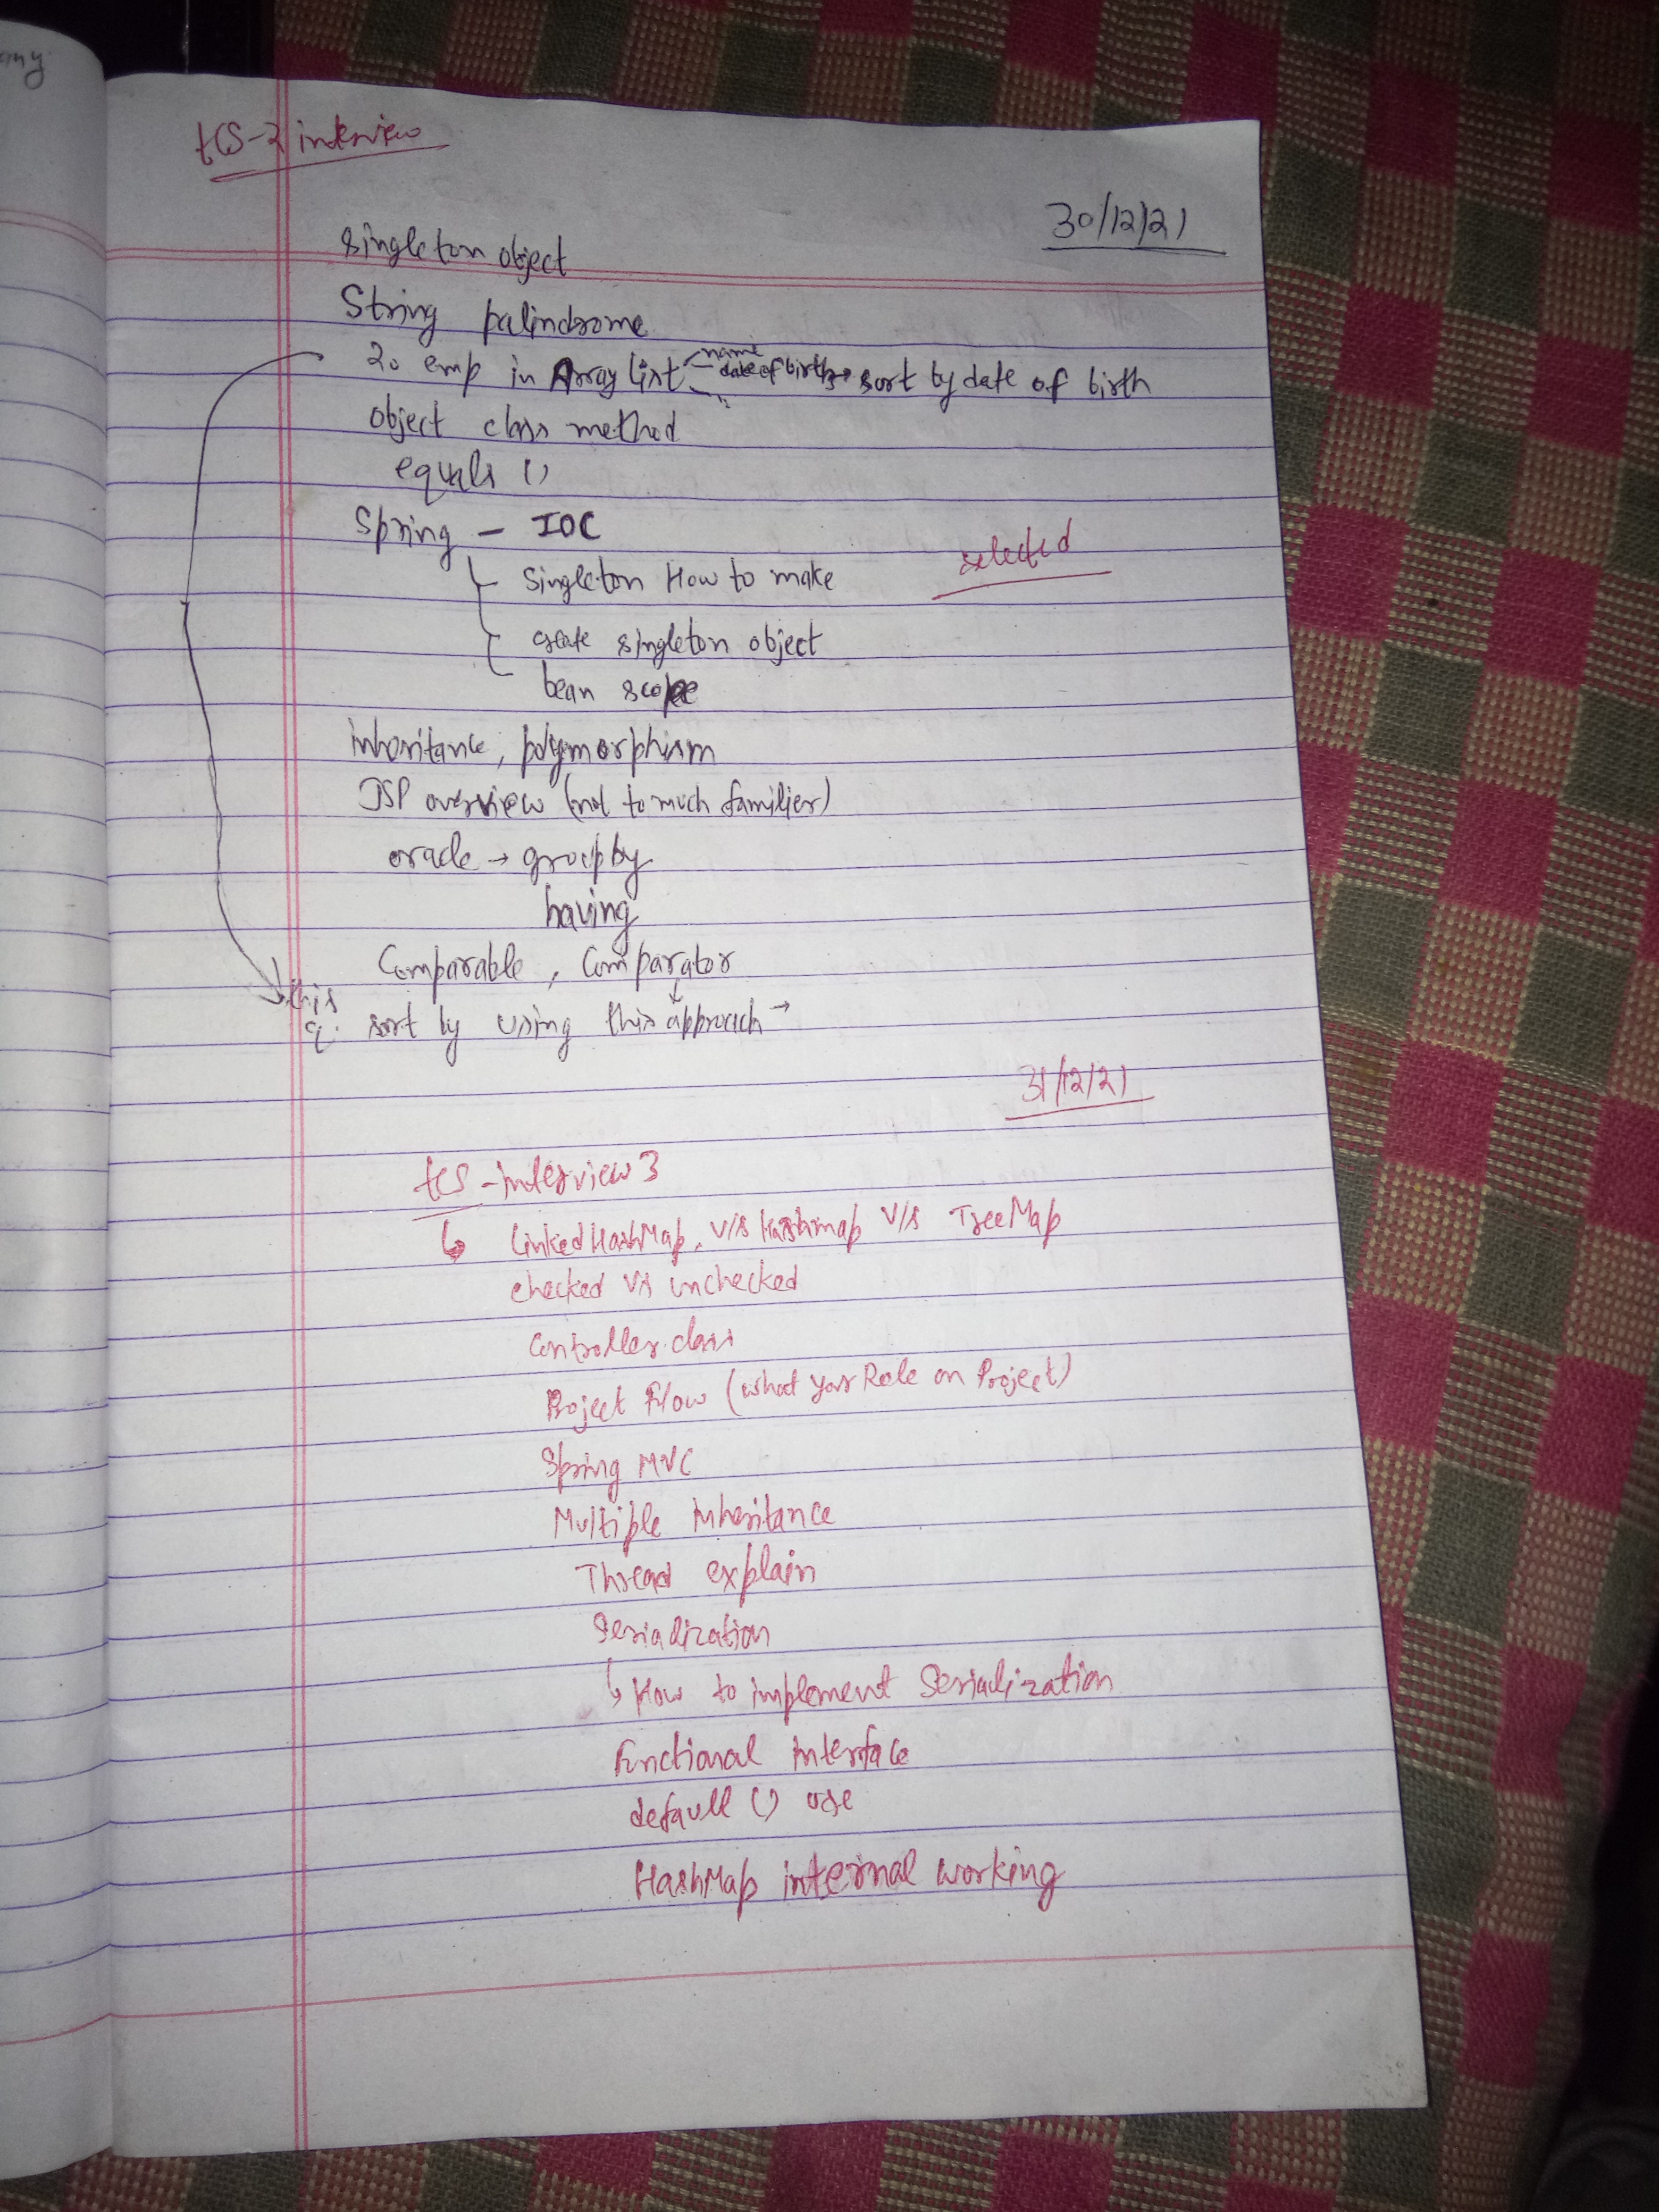 any
tcs-2 interview
30/12/21
singleton object
String palindrome
20 emp in ArrayList name date of birth " → sort by date of birth
object class method
equals ()
Spring - IOC
selected
Singleton How to make
create singleton object
bean scope
inheritance, polymorphism
JSP overview (not to much familier)
oracle → group by
having
Comparable, Comparator
this q. sort by using this approach →
31/12/21
tcs - interview 3
↳ LinkedHashMap. v/s Hashmap v/s TreeMap
checked v/s unchecked
Controller class
Project Flow (what your Role on Project)
Spring MVC
Multiple Inheritance
Thread explain
Serialization
↳ How to implement Serialization
Functional Interface
default () use
HashMap internal working